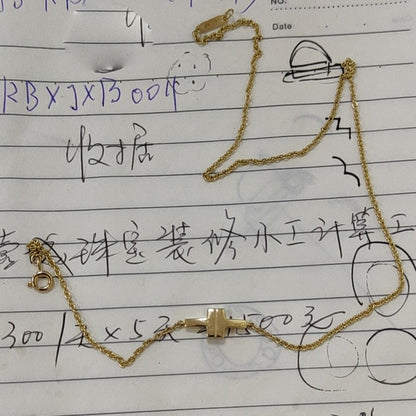 NO.
Date
RBXJXB004
收据
珠宝装修小工计算工
300/天×5天=1500元